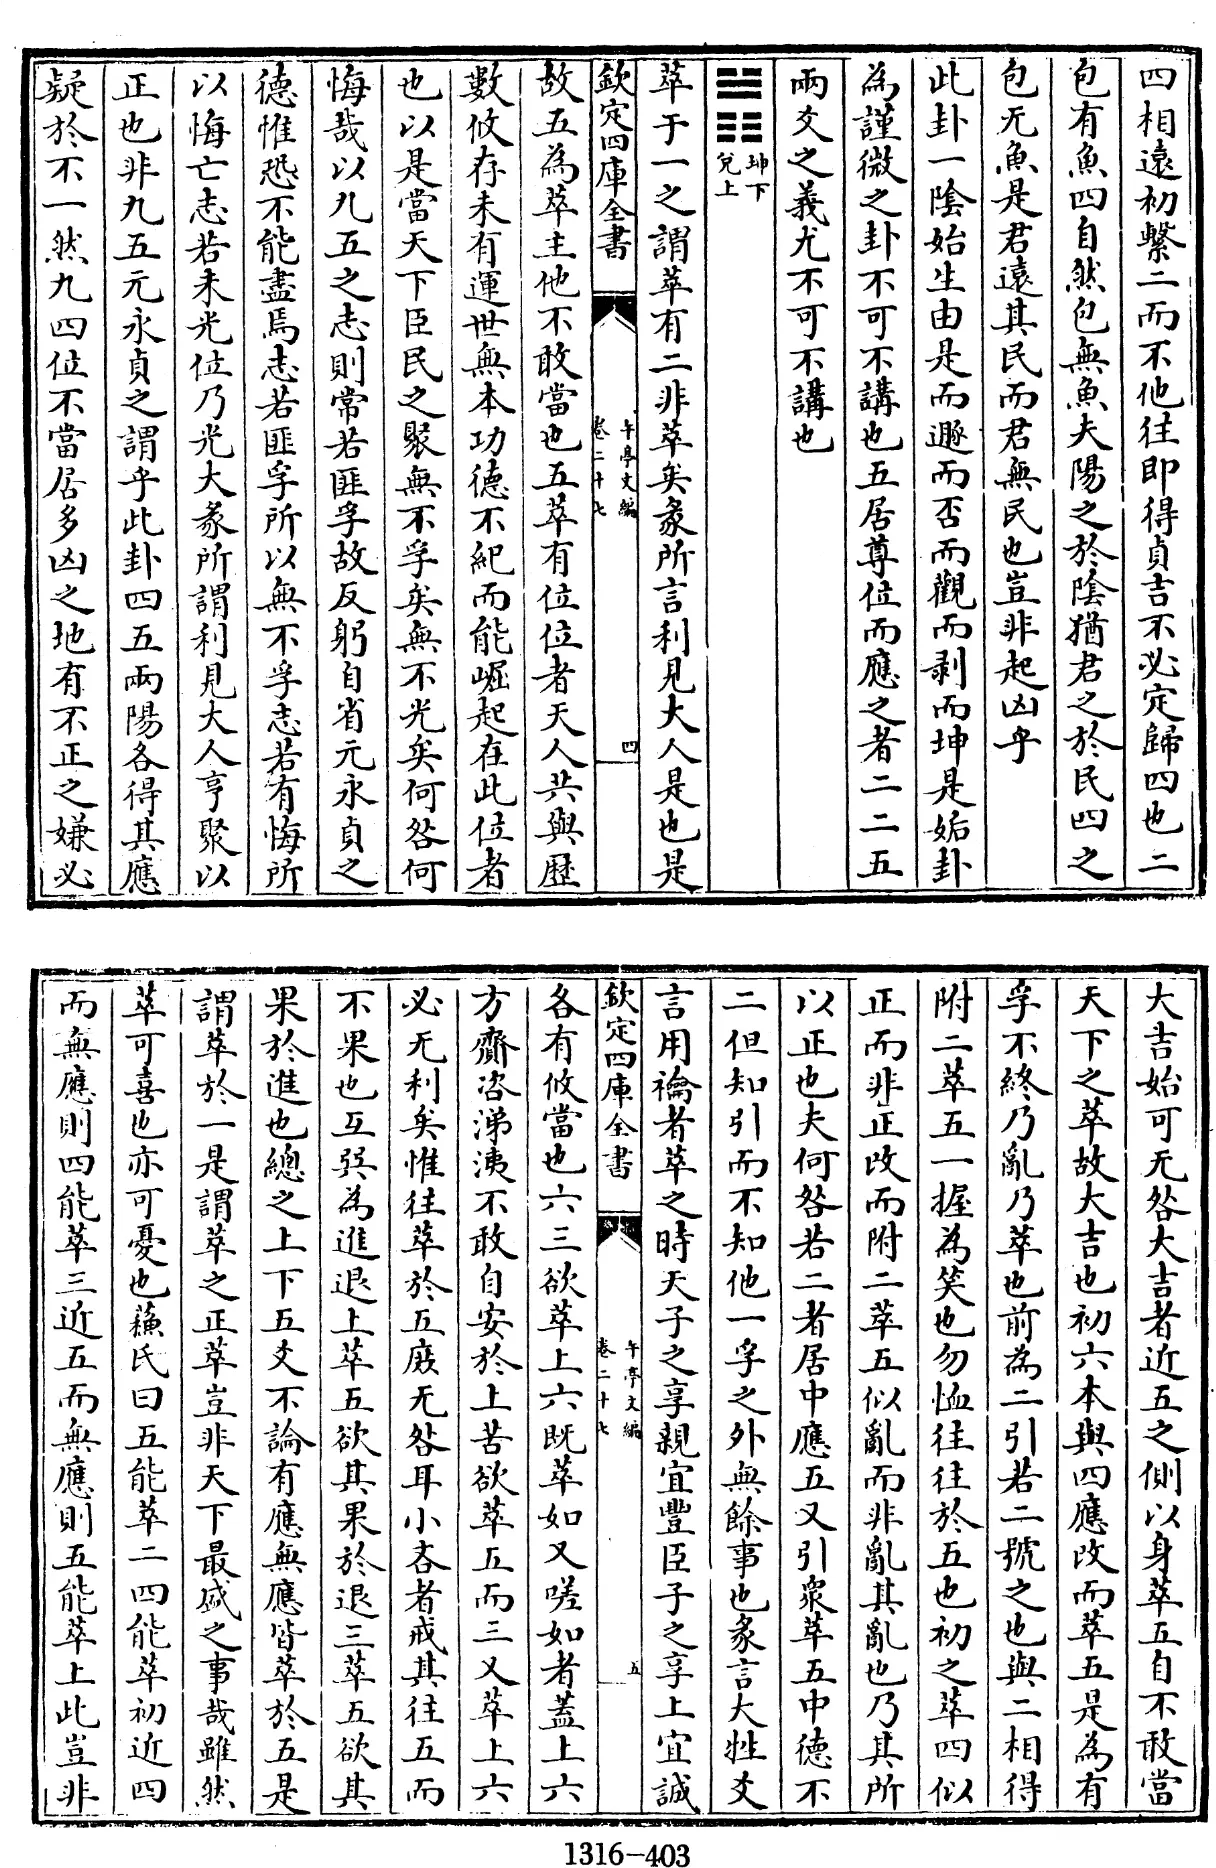 四相遠初繫二而不他往即得貞吉不必定歸四也二
包有魚四自然包無魚夫陽之於陰猶君之於民四之
包无魚是君遠其民而君無民也豈非起凶乎
此卦一陰始生由是而遯而否而觀而剥而坤是姤卦
為謹微之卦不可不講也五居尊位而應之者二二五
兩爻之義尤不可不講也
䷬坤下兌上
萃于一之謂萃有二非萃矣彖所言利見大人是也是
欽定四庫全書 午亭文編 卷二十七 四
故五為萃主他不敢當也五萃有位位者天人共與歷
數攸存未有運世無本功德不紀而能崛起在此位者
也以是當天下臣民之聚無不孚矣無不光矣何咎何
悔哉以九五之志則常若匪孚故反躬自省元永貞之
德惟恐不能盡焉志若匪孚所以無不孚志若有悔所
以悔亡志若未光位乃光大彖所謂利見大人亨聚以
正也非九五元永貞之謂乎此卦四五兩陽各得其應
疑於不一然九四位不當居多凶之地有不正之嫌必
大吉始可无咎大吉者近五之側以身萃五自不敢當
天下之萃故大吉也初六本與四應改而萃五是為有
孚不終乃亂乃萃也前為二引若二號之也與二相得
附二萃五一握為笑也勿恤往往於五也初之萃四似
正而非正改而附二萃五似亂而非亂其亂也乃其所
以正也夫何咎若二者居中應五又引衆萃五中德不
二但知引而不知他一孚之外無餘事也彖言大牲爻
言用禴者萃之時天子之享親宜豐臣子之享上宜誠
欽定四庫全書 午亭文編 卷二十七 五
各有攸當也六三欲萃上六既萃如又嗟如者蓋上六
方齎咨涕洟不敢自安於上苦欲萃五而三又萃上六
必无利矣惟往萃於五庶无咎耳小吝者戒其往五而
不果也互巽為進退上萃五欲其果於退三萃五欲其
果於進也總之上下五爻不論有應無應皆萃於五是
謂萃於一是謂萃之正萃豈非天下最盛之事哉雖然
萃可喜也亦可憂也蘓氏曰五能萃二四能萃初近四
而無應則四能萃三近五而無應則五能萃上此豈非
1316-403